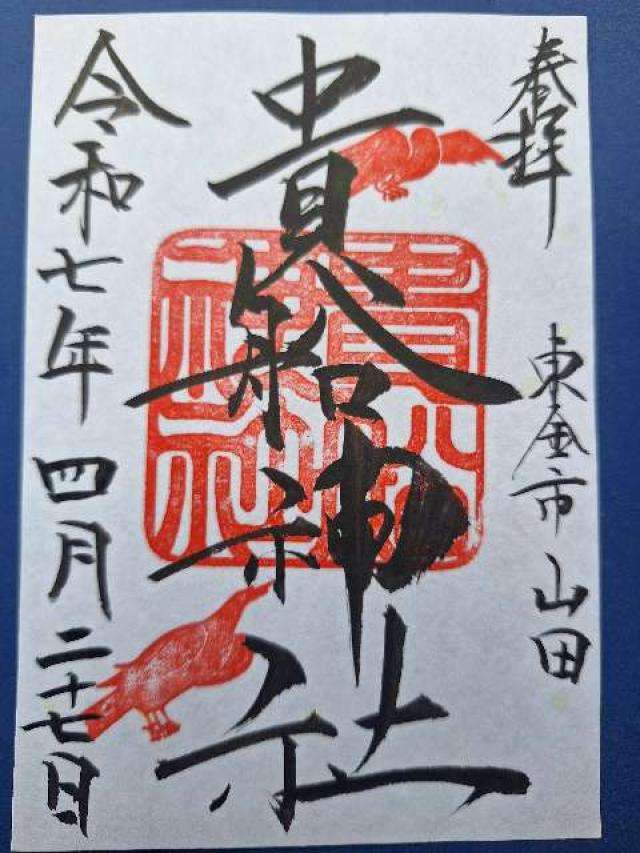 奉拝
東金市山田
貴船神社
貴船神社
令和七年四月二十七日